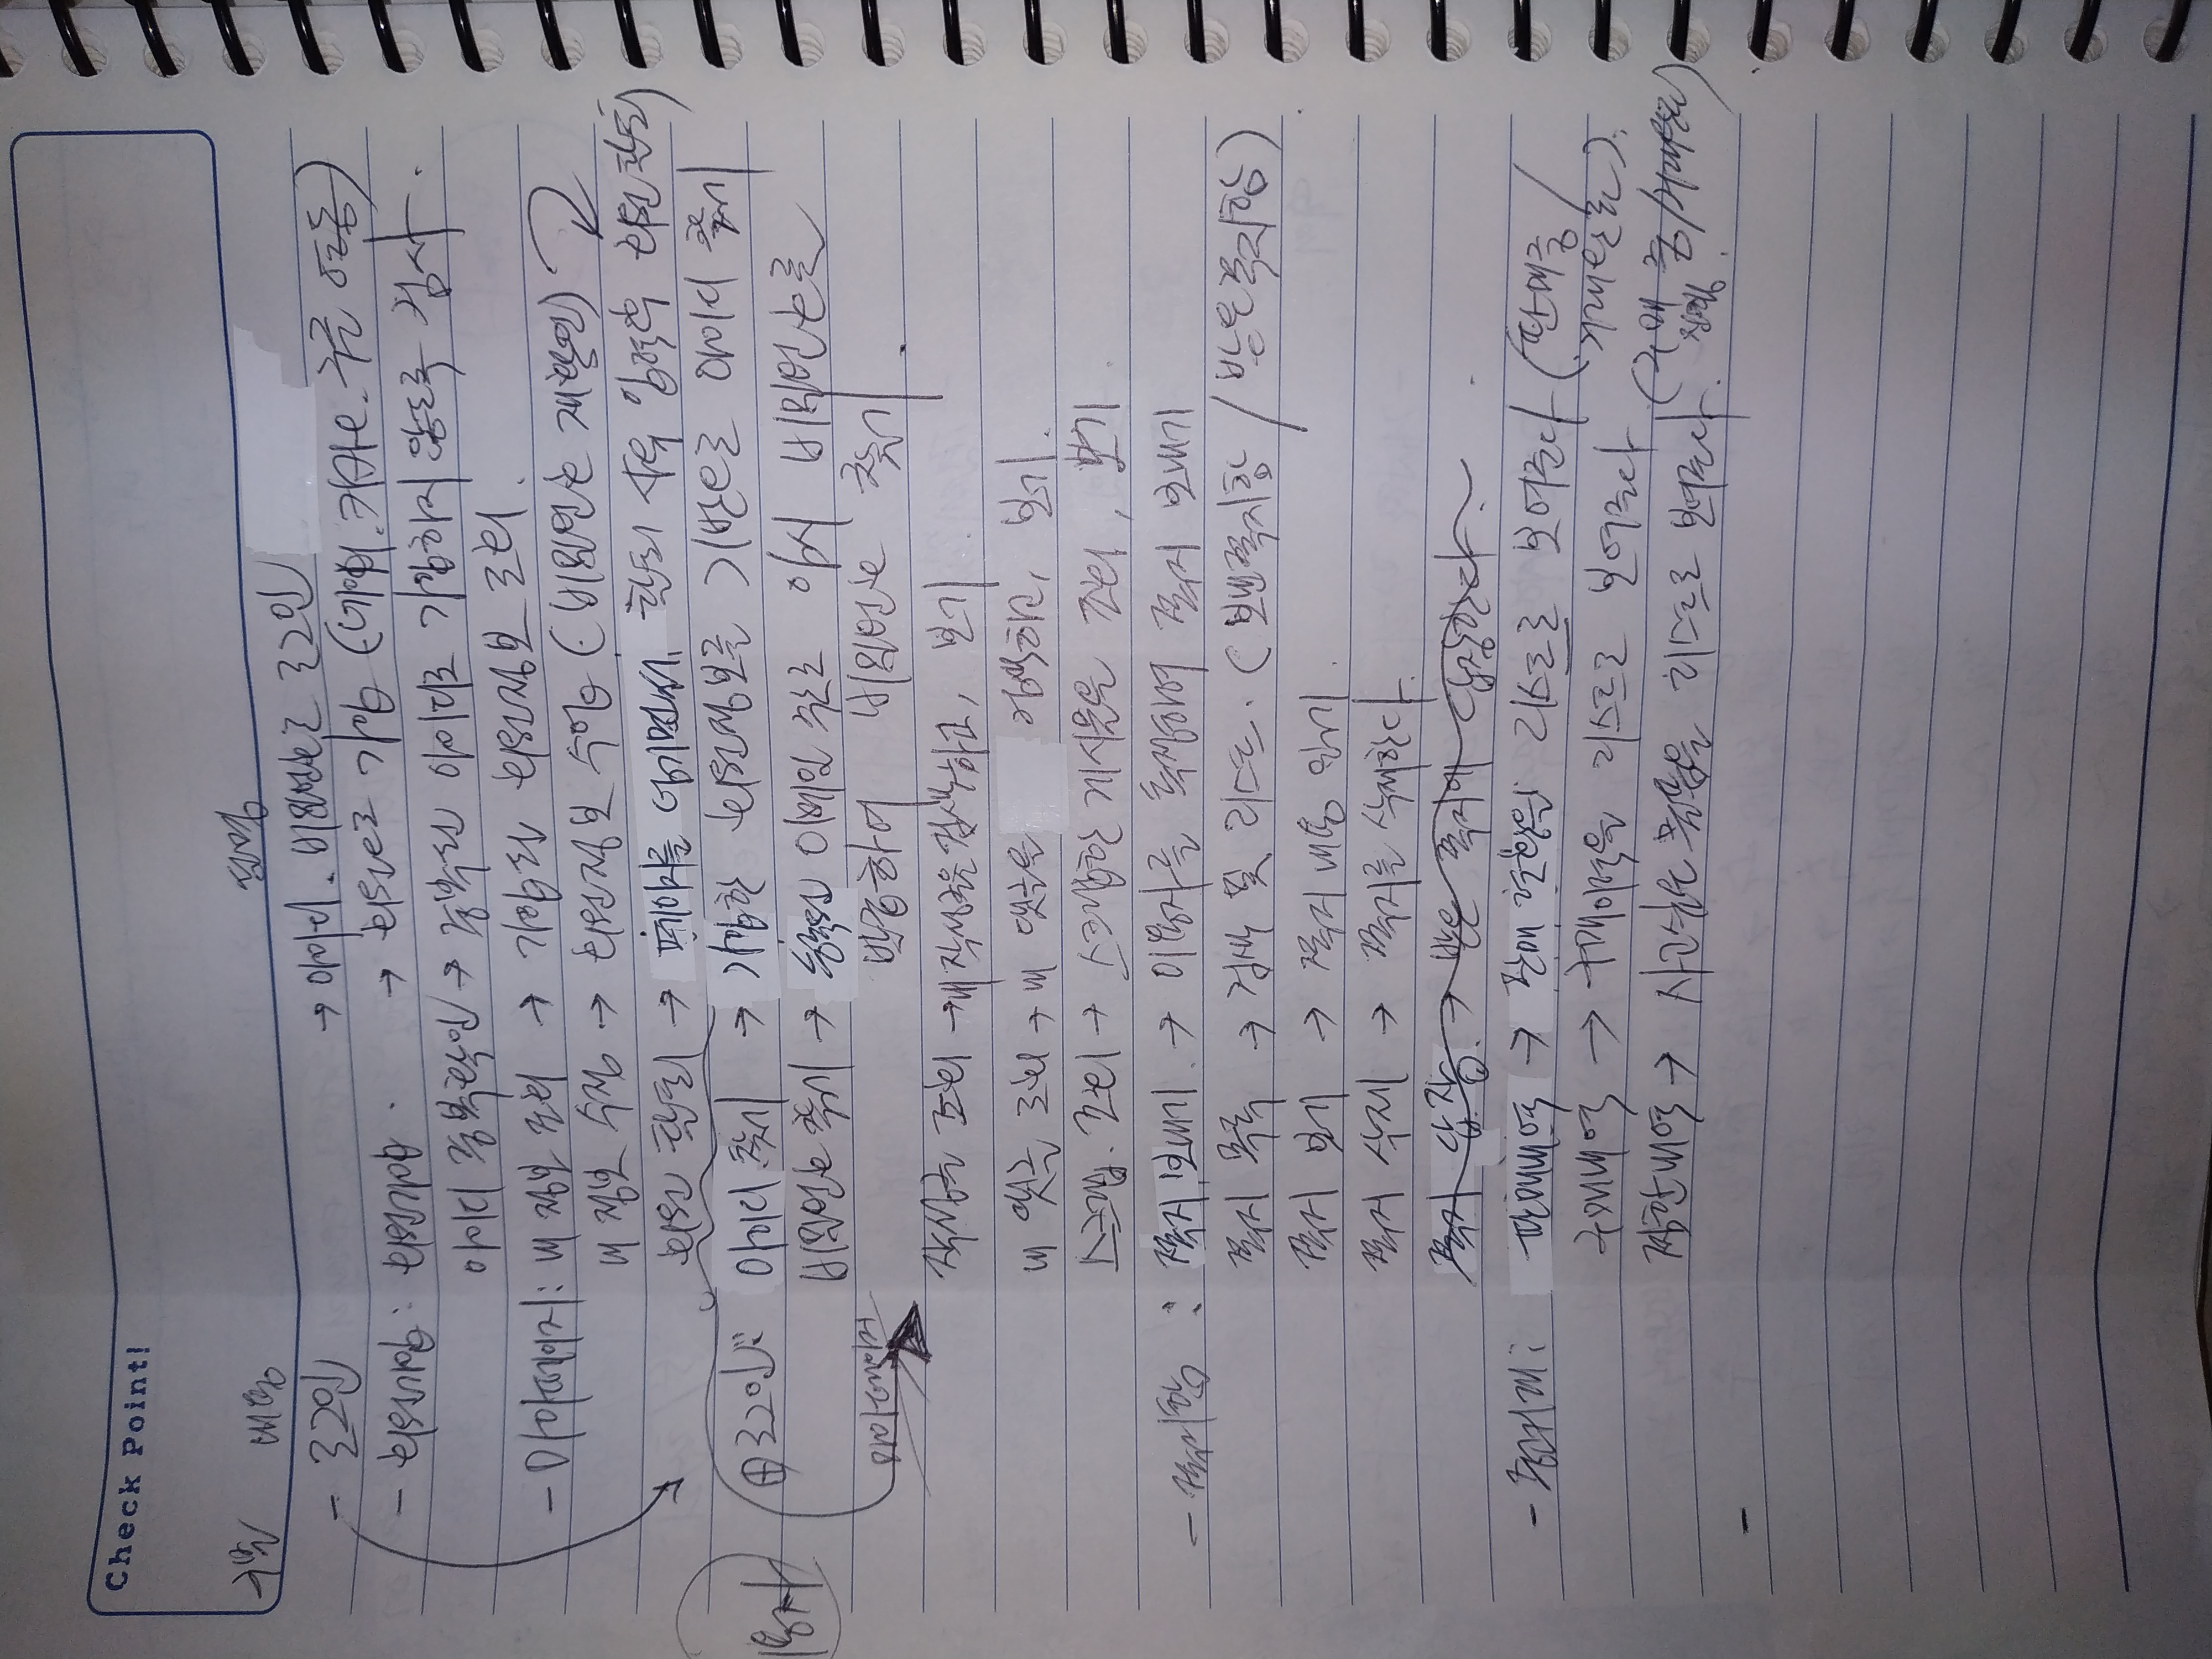 Check Point!
구분 내용 설명
- 로그인 → 아이디. 비밀번호로 로그인
- 회원가입: 회원가입. → 회원으로 가입 (네이버. 카카오. 구글 연동)
아이디 중복확인 → 중복된 아이디로 가입하지 않도록 검사.
- 마이페이지: 내 정보 조회 → 가입된 회원정보 조회.
내 정보 수정 → 회원정보 수정 (비밀번호 재확인)
회원 탈퇴 → 페이지를 넘기면서, 탈퇴 사유 입력후 회원탈퇴
이용자
⊕ 로그인: 아이디 찾기 → 가입한 회원정보를 기반으로 아이디 찾기
비밀번호 찾기 → 등록된 이메일 주소로 임시 비밀번호를
마이페이지 발송하여 비밀번호 찾기.
작성글 조회 → 내 작성글을 검색하고, 보기.
내 댓글 조회 → 내 댓글을 검색하고, 보기.
스크랩. 조회 → 스크랩한 게시물을 조회, 보기.
- 쪽지함 : 쪽지 보내기. → 이용자를 특정하여 쪽지 보내기
쪽지 목록 → 검색 및 리스트. (보낸쪽지함 / 받은쪽지함)
쪽지 보기 → 쪽지 내용 읽기.
쪽지 삭제 → 쪽지를 삭제한다.
쪽지 답장. → 받은 쪽지에 답장한다.
- 중고거래: 판매내역 → 판매 현황을 리스트로 보여준다 (판매중/
거래완료).
구매내역 → 구매이력을 리스트로 보여준다
(구매 진행중/거래완료)
찜한내역 → 사고싶은 물품을 리스트로 보여준다.
-